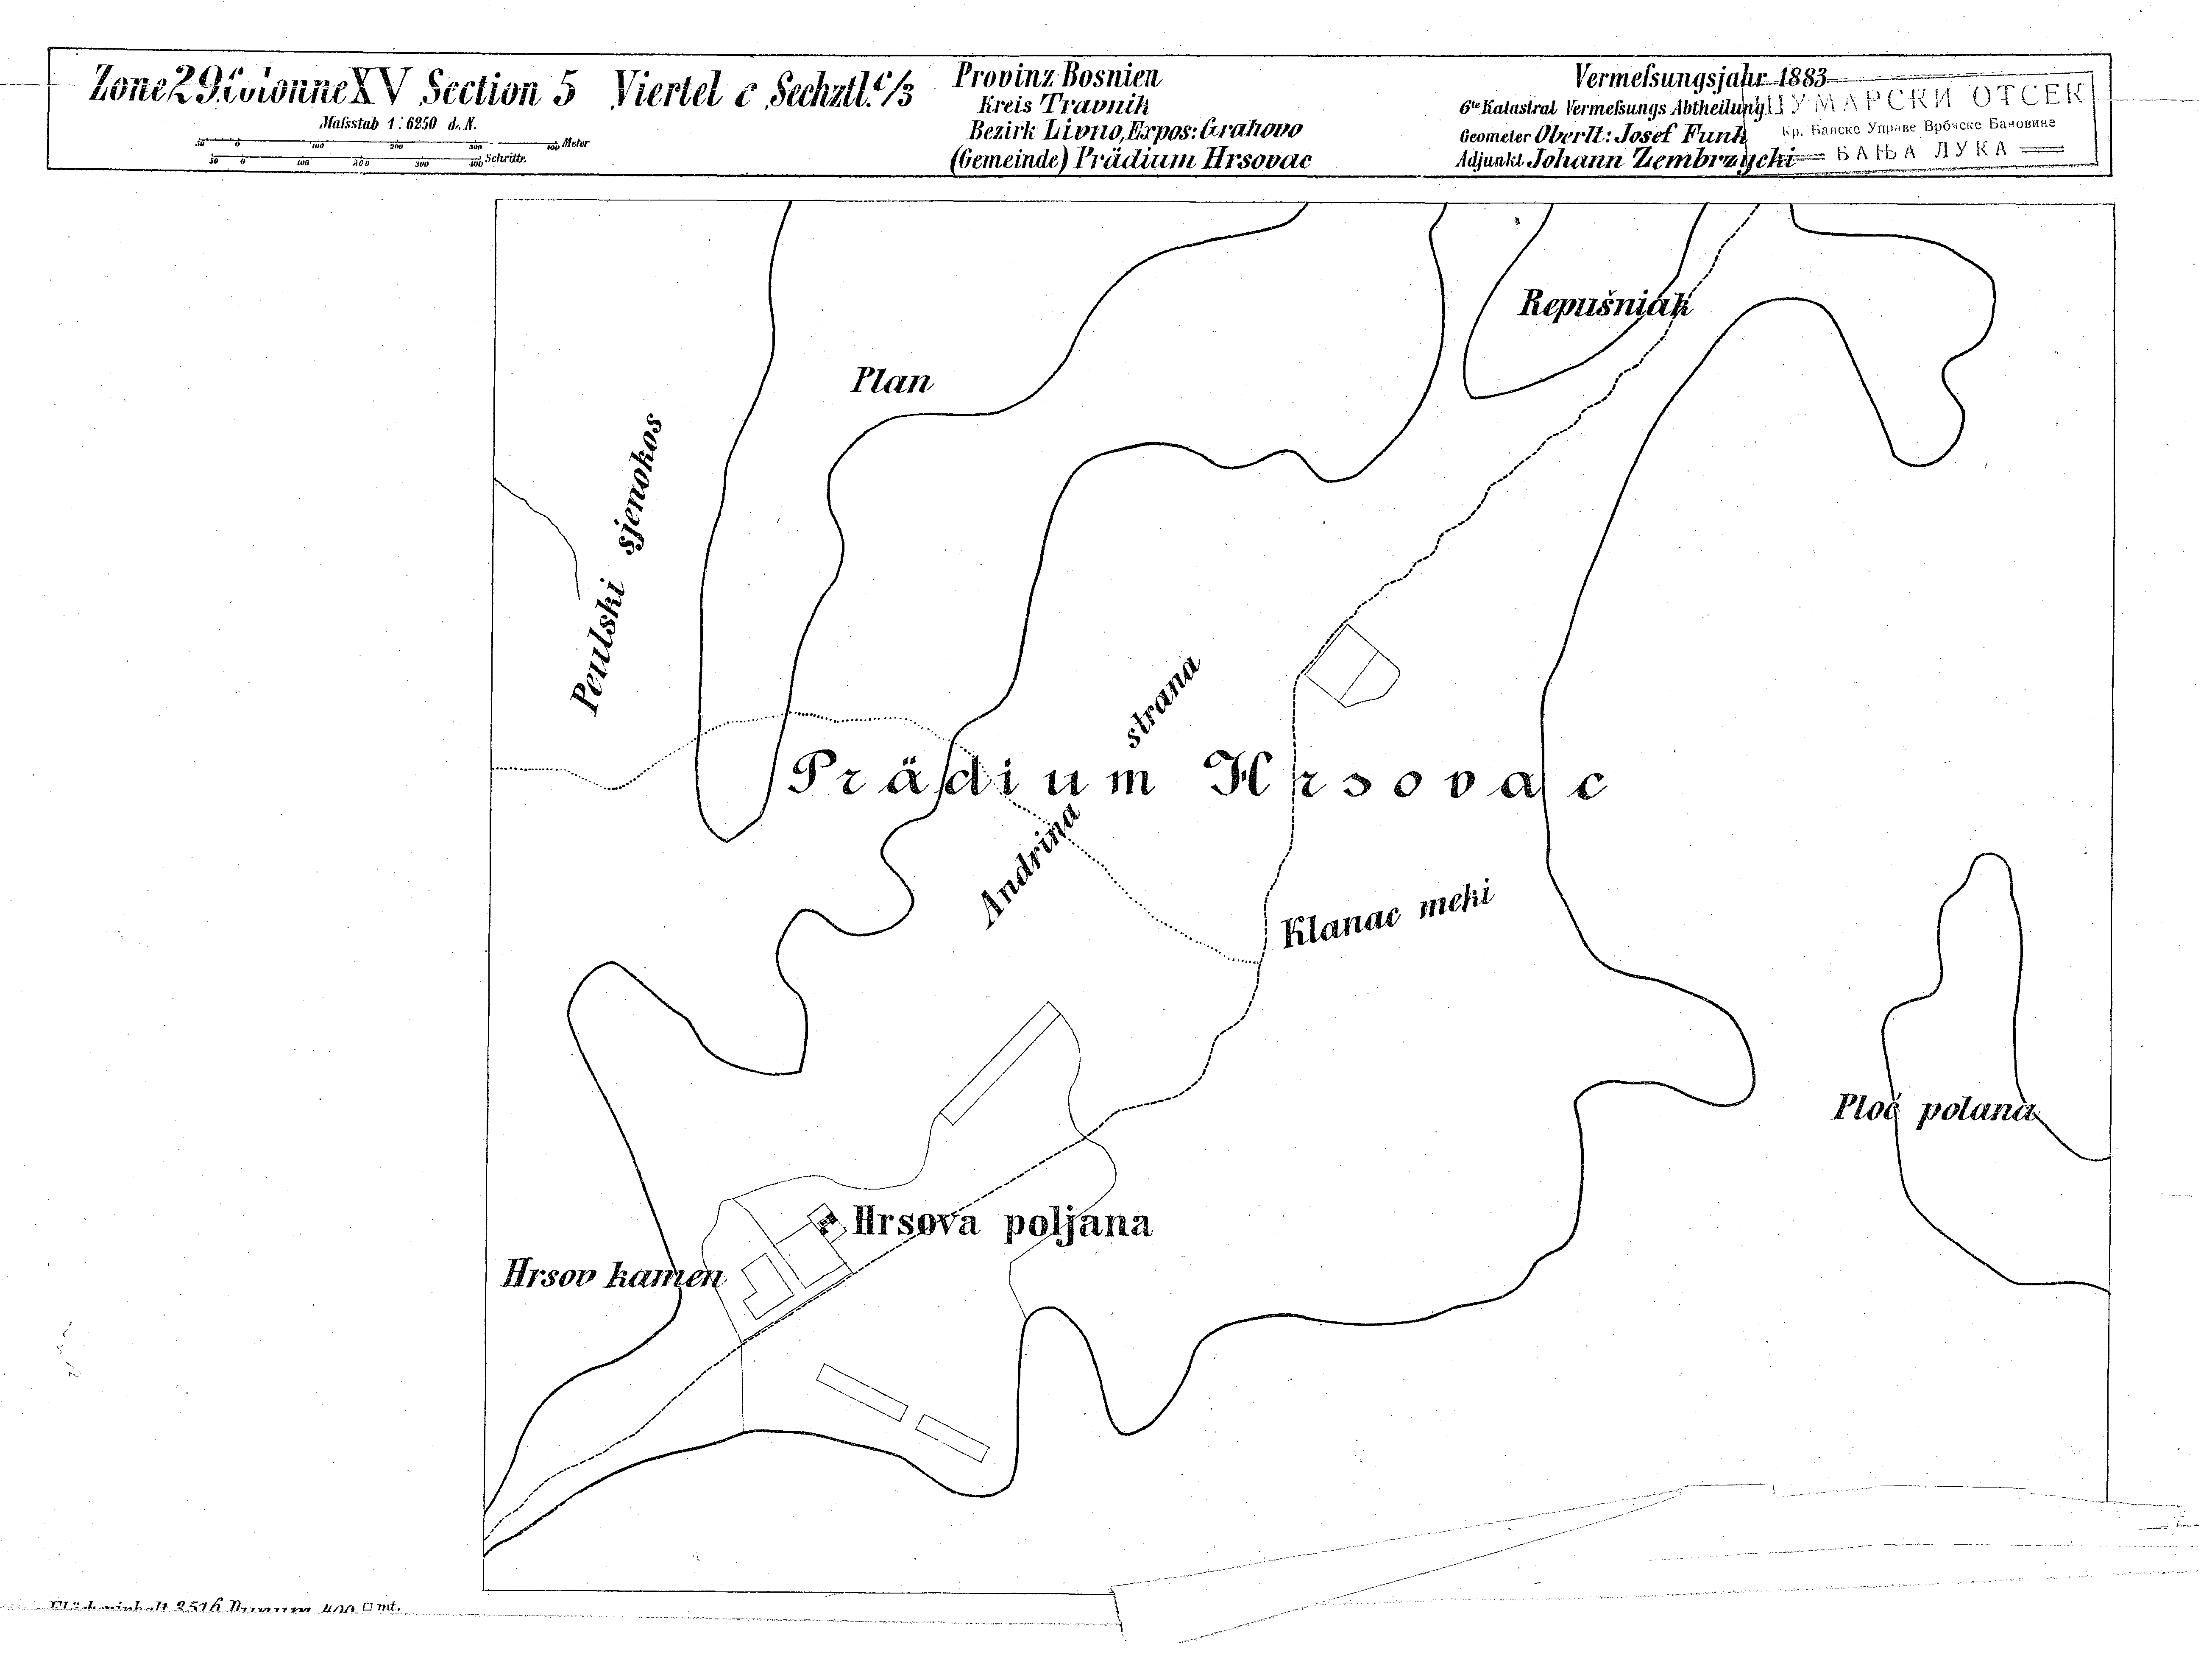 Zone 29 Colonne XV Section 5 Viertel c Sechztl. c/3
Maſsstub 1:6250 d. N.
50 0 100 200 300 400 Meter
50 0 100 200 300 400 Schritte
Provinz Bosnien
Kreis Travnik
Bezirk Livno, Expos: Grahovo
(Gemeinde) Prädium Hrsovac
Vermeſsungsjahr 1883
6te Katastral Vermeſsungs Abtheilung
Geometer Oberlt: Josef Funk
Adjunkt Johann Ziembrzycki
ШУМАРСКИ ОТСЕК
Кр. Банске Управе Врбаске Бановине
БАЊА ЛУКА
Repušniak
Plan
Peulski sjenokos
Andrina strana
Prädium Hrsovac
Klanac meki
Ploć polana
Hrsova poljana
Hrsov kamen
Flächeninhalt 3516 Dunum 400 □ mt.